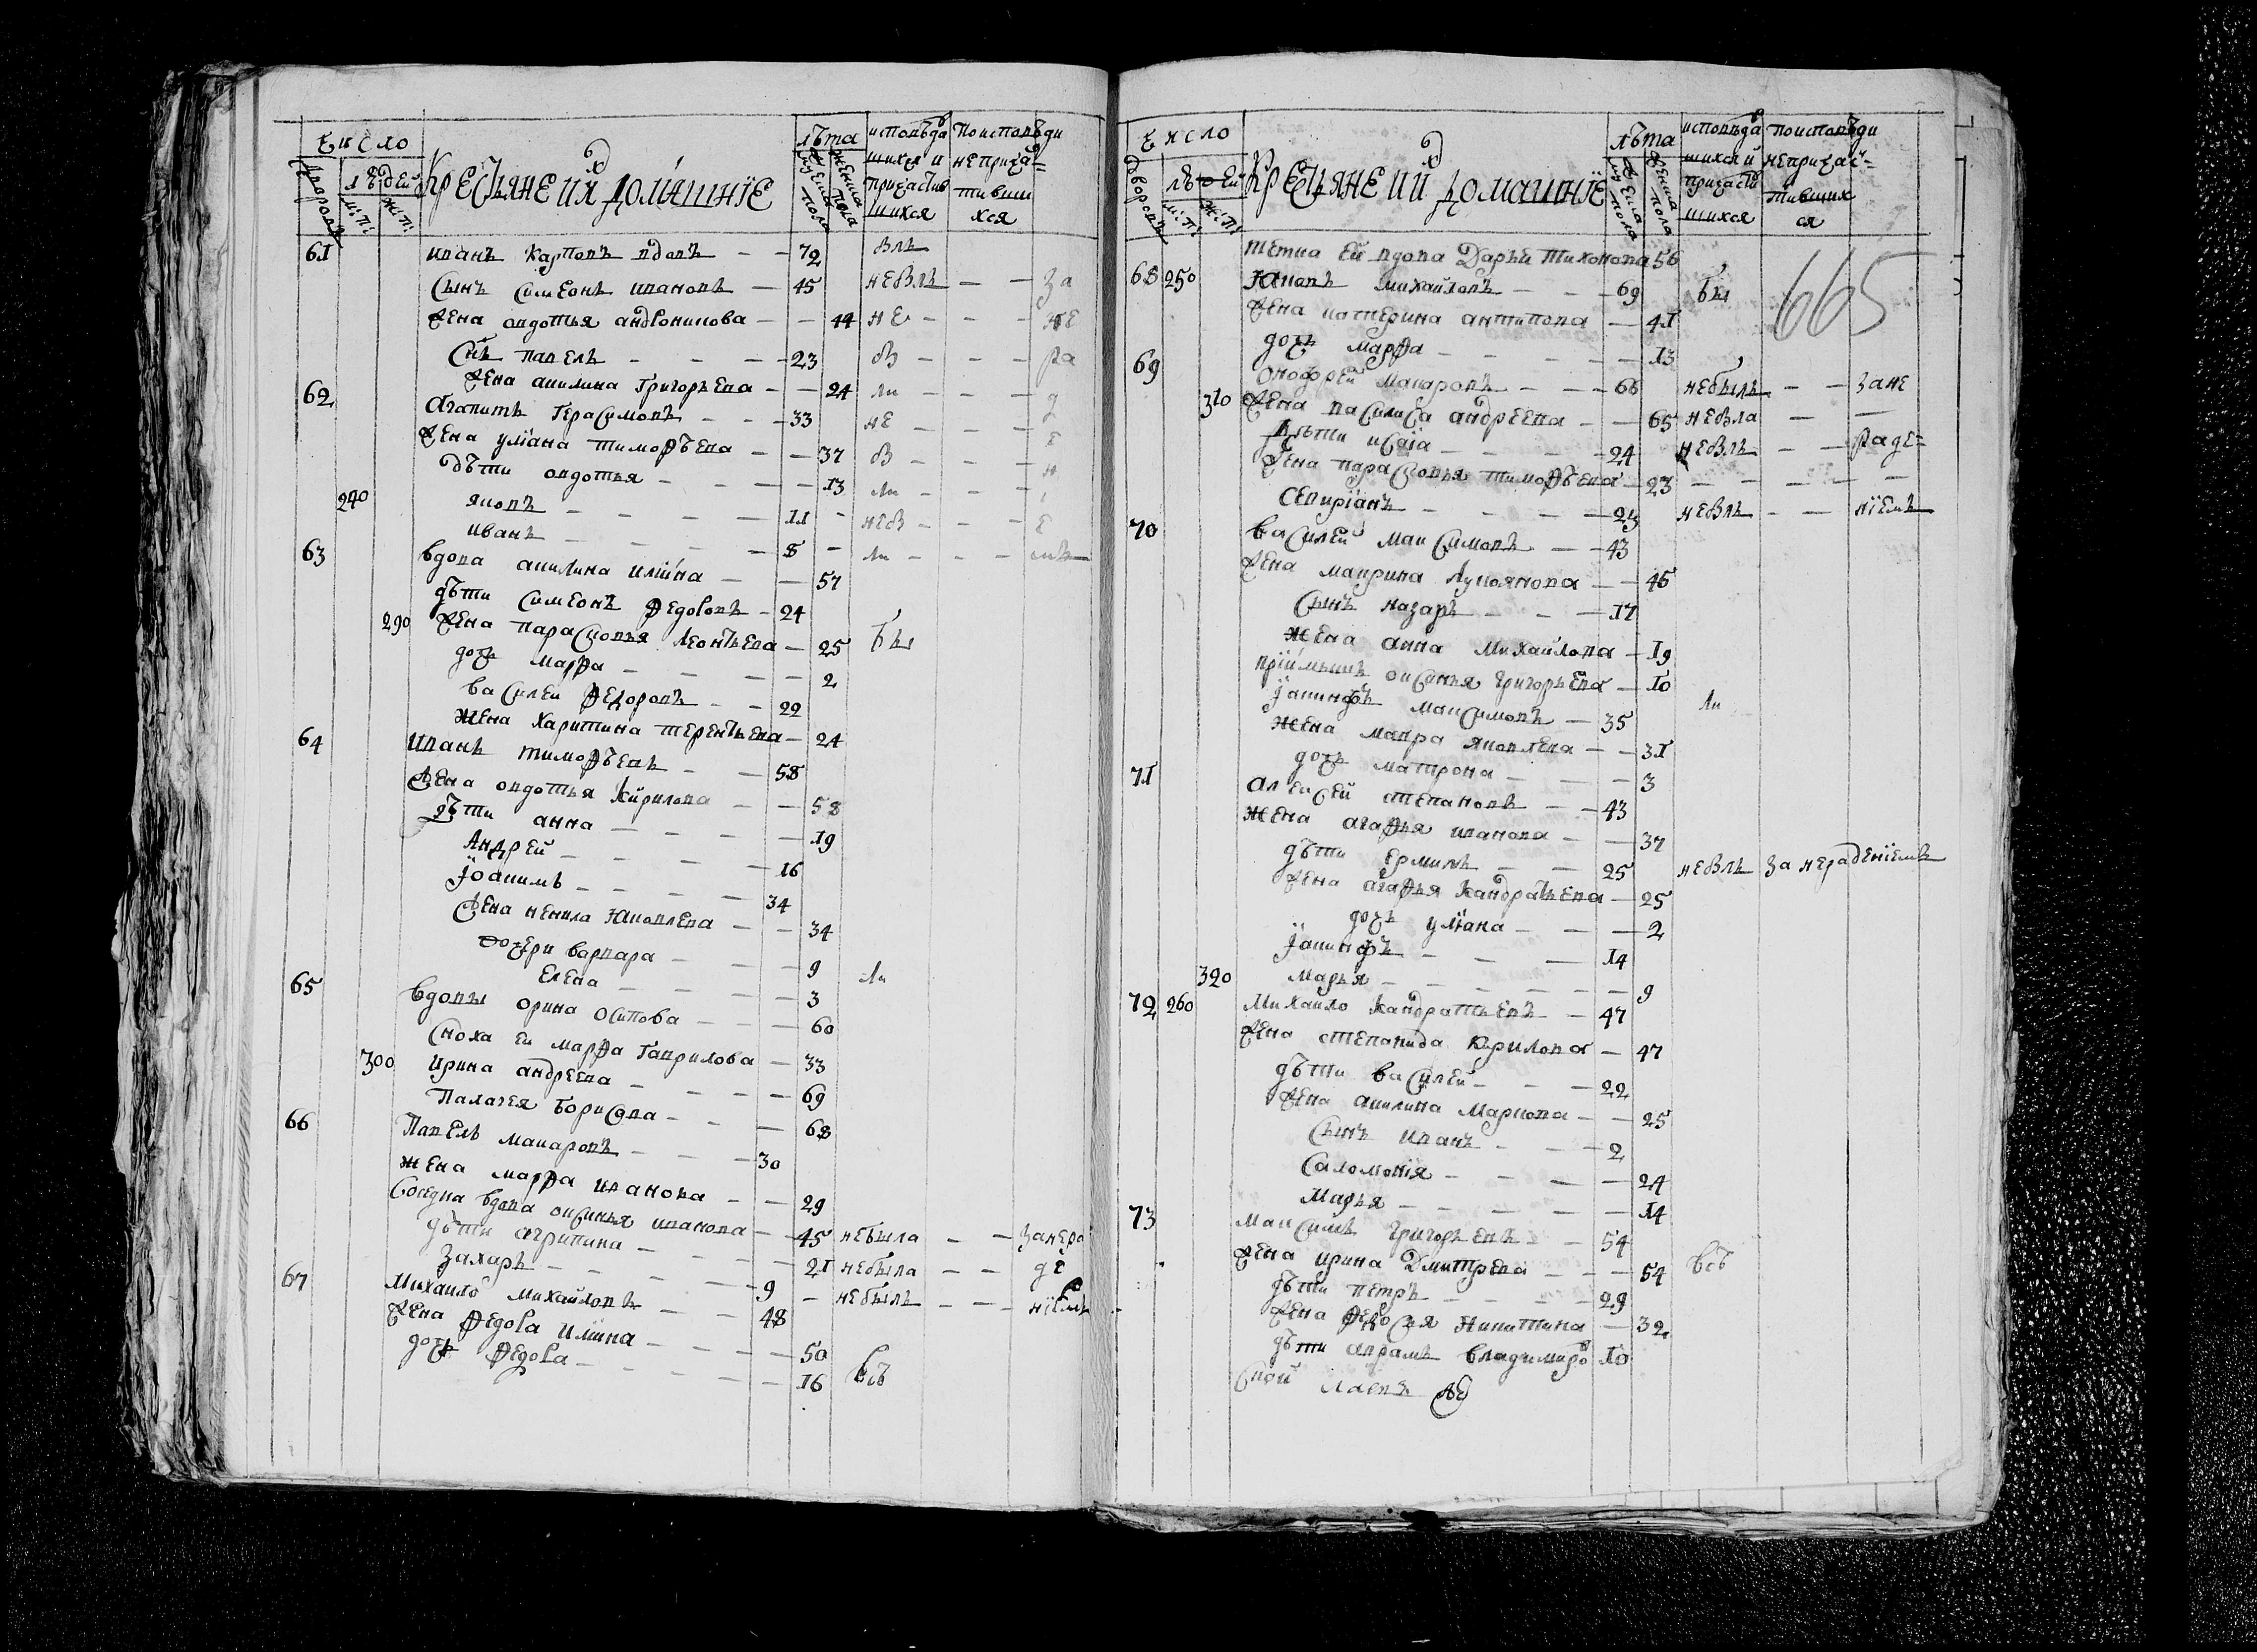 Число
дворовъ
людей
м: п:
ж: п:
Крестьяне и ихъ домашние
лѣта
мужеска пола
женска пола
исповѣдавшихся и причастившихся
По исповѣди не причастившихся
61 иванъ Карповъ вдовъ — — 72 былъ
Сынъ Симеонъ ивановъ — 45 небылъ — — за
Жена овдотья андроникова — — 44 не — — — не
Снъ павелъ — — — 23 бы — — — ра
Жена акилина григорьева — — 24 ли — — — д
62 Агапитъ герасимовъ — — 33 не — — — е
Жена улїана тимофѣева — — 37 бы — — — н
дѣти овдотья — — — 13 ли — — — ї
240 яковъ — — — — 11 — небы — — — е
иванъ — — — — 8 — ли — — — мъ
63 вдова акилина илїина — — 57
дѣти Симеонъ Федоровъ — 24
290 Жена Парасковья Леонтьева — 25 бы
дочь марфа — — — — 2
василеи Федоровъ — — 22
жена харитина терентьева — 24
64 Иванъ тимофѣевъ — — 58
Жена овдотья кирилова — — 58
дѣти анна — — — — 19
Андрей — — — — 16
Їоакимъ — — — — 34
Жена ненила яковлева — — 34
дочери варвара — — — 9
Елена — — — — 3 ли
65 вдовы орина осипова — — — 60
Сноха ей марфа гаврилова — 33
300 ирина андреева — — — — 69
Палагея борисова — — — 68
66 Павелъ макаровъ — — — 30
жена марфа иванова — — 29
Соседка вдова оксинья иванова — — 45 небыла — — занера
дѣти агрипина — — — — 21 небыла — — де
Захаръ — — — — 9 — небылъ — — нїемъ
67 Михаило михаиловъ — — 48
Жена Федора илїина — — — 50
дочь Федора — — — — 16 всѣ
Число
дворовъ
людей
м: п:
ж: п:
Крестьяне и ихъ домашние
лѣта
мужеска пола
женска пола
исповѣдавшихся и причастившихся
по исповѣди не причастившихся
665
тетка ей вдова Дарья тихонова 56
68 250 Яковъ михайловъ — — — 69 бы
Жена катерина антипова — 41
дочь марфа — — — — — 13
69 Онофрей макаровъ — — — 66 небылъ — — зане
310 Жена василиса андреева — — 65 небыла — —
Дѣти исаїа — — — — 24 небылъ — — раде=
Жена парасковья тимофѣева — 23 — — — — —
Севирїанъ — — — — 23 небылъ — — нїемъ
70 василей максимовъ — — 43
Жена маврина лукоянова — — 45
Сынъ назаръ — — — 17
жена анна михайлова — 19
прїимышъ оксинья григорьева — 10
Їакинфъ максимовъ — 35 ли
жена мавра яковлева — — 31
дочь матрона — — — 3
71 алексей степановъ — — 43
жена агафья иванова — — 37
дѣти ермилъ — — — 25 небылъ за нерадениемъ
Жена агафья кандратьева — 25
дочь улїана — — — 2
Їакинфъ — — — — 14
320 Марья — — — — — — 9
72 260 Михаило кандратьевъ — — 47
Жена степанида кирилова — 47
дѣти василей — — — 22
Жена акилина маркова — — 25
Сынъ иванъ — — — 2
Саломонїя — — — — 24
марья — — — — — 14
73 максимъ григорьевъ — — 54
Жена ирина Дмитрева — — — 54 всѣ
дѣти петръ — — — — 29
Жена Федосья никитина — 32
дѣти авраамъ владимиръ 10